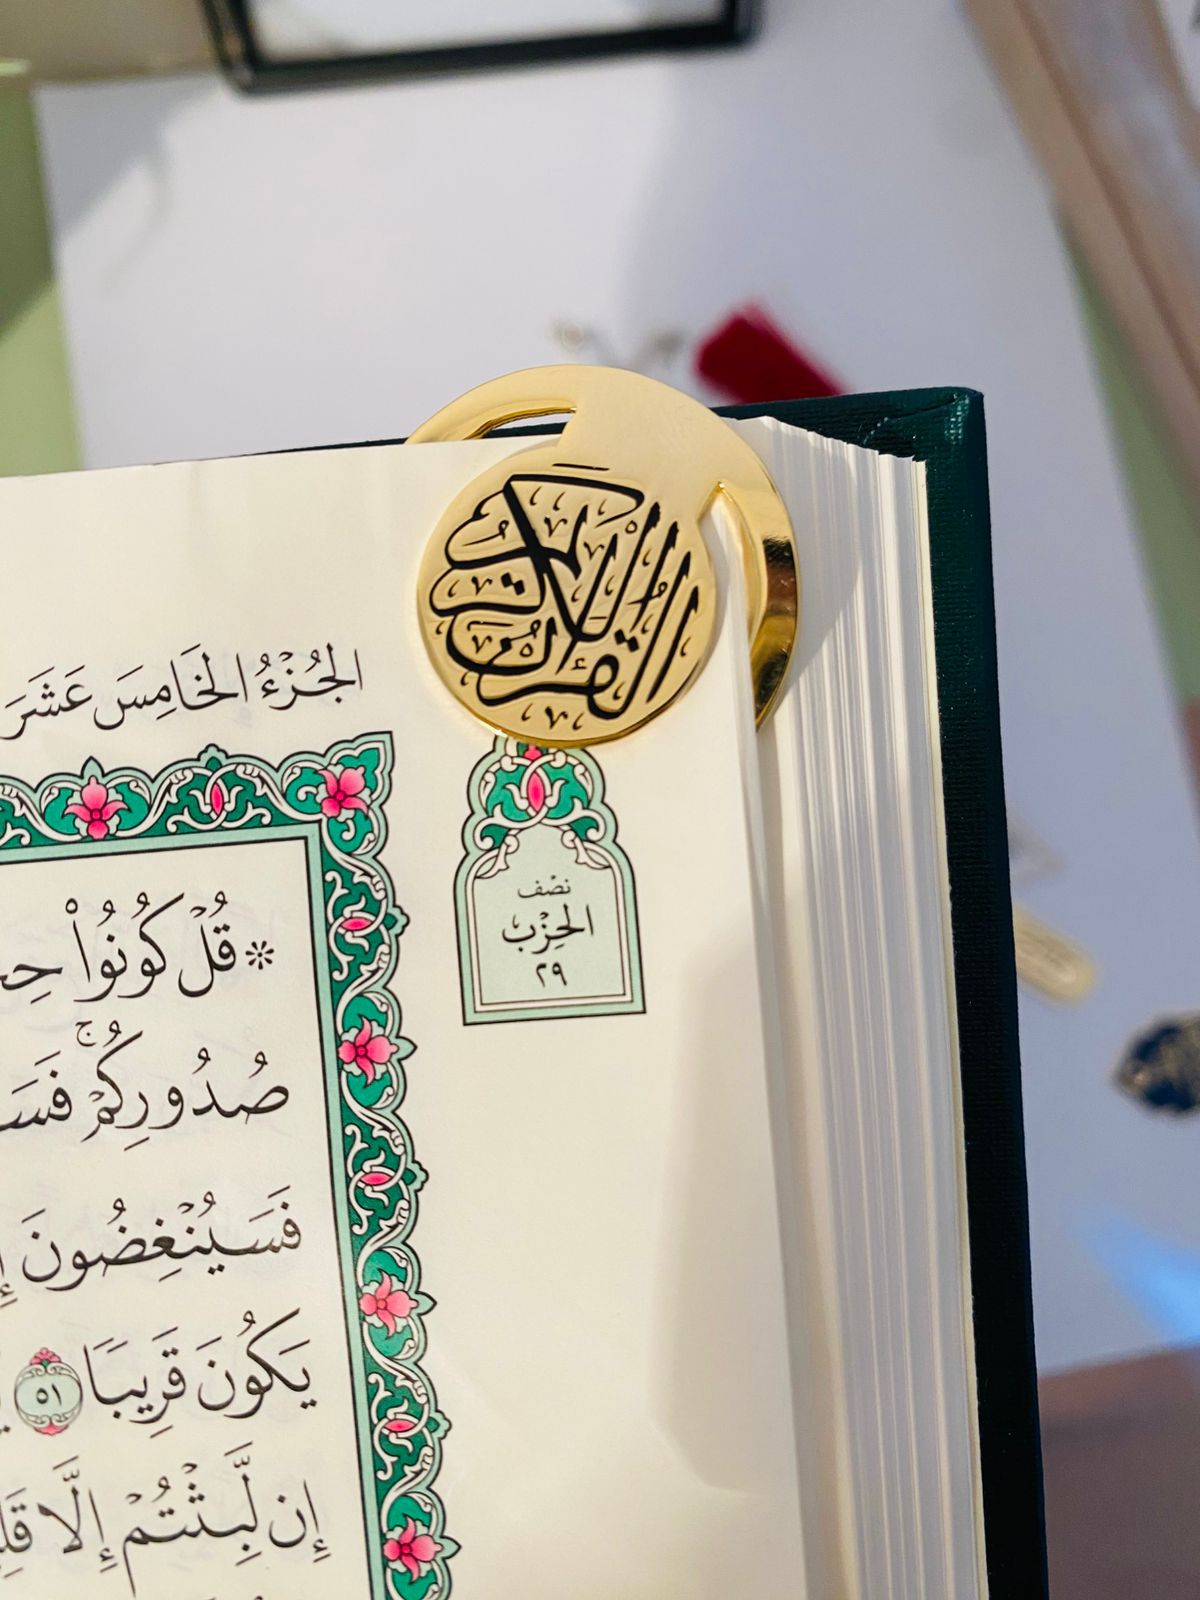 القرآن الكريم
الجُزْءُ الخَامِسَ عَشَرَ
نصْف
الحِزْب
٢٩
* قُلْ كُونُواْ
صُدُورِكُمْۚ
فَسَيُنْغِضُونَ
يَكُونَ قَرِيبٗا ٥١
إِن لَّبِثْتُمْ إِلَّا